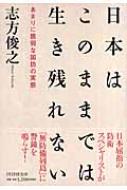 日本は
このままでは
生き残れない
あまりに脆弱な国防の実態
志方俊之
日本屈指の
スペシャリストが
「無防備列島」に
警鐘を
鳴らす!